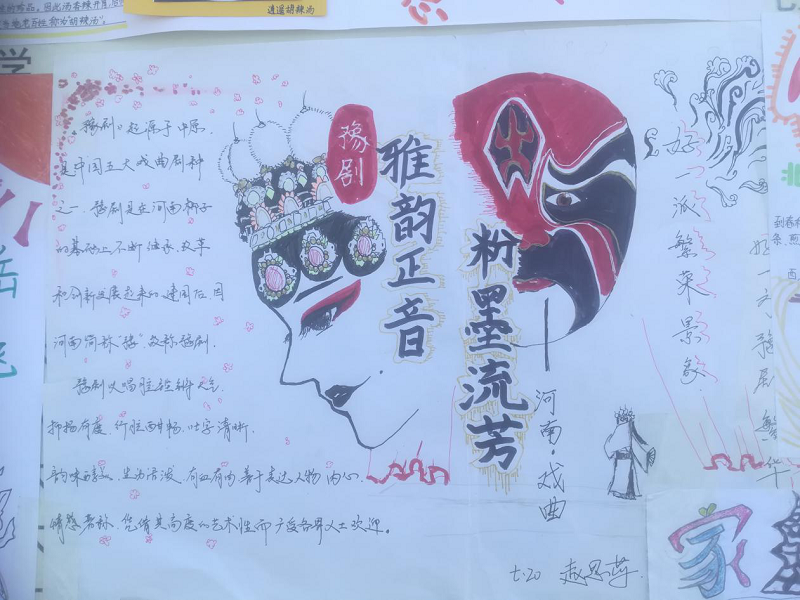 逍遥胡辣汤
学
豫剧
雅韵正音
粉墨流芳
河南·戏曲
好一派繁荣景象
豫剧》起源于中原,
是中国五大戏曲剧种
之一.豫剧是在河南梆子
的基础上不断继承、改革
和创新发展起来的.建国后因
河南简称"豫",故称豫剧.
豫剧以唱腔铿锵大气、
抑扬有度、行腔酣畅、吐字清晰、
韵味醇美、生动活泼、有血有肉、善于表达人物内心
情感著称,凭借其高度的艺术性而广受各界人士欢迎。
7.20
家